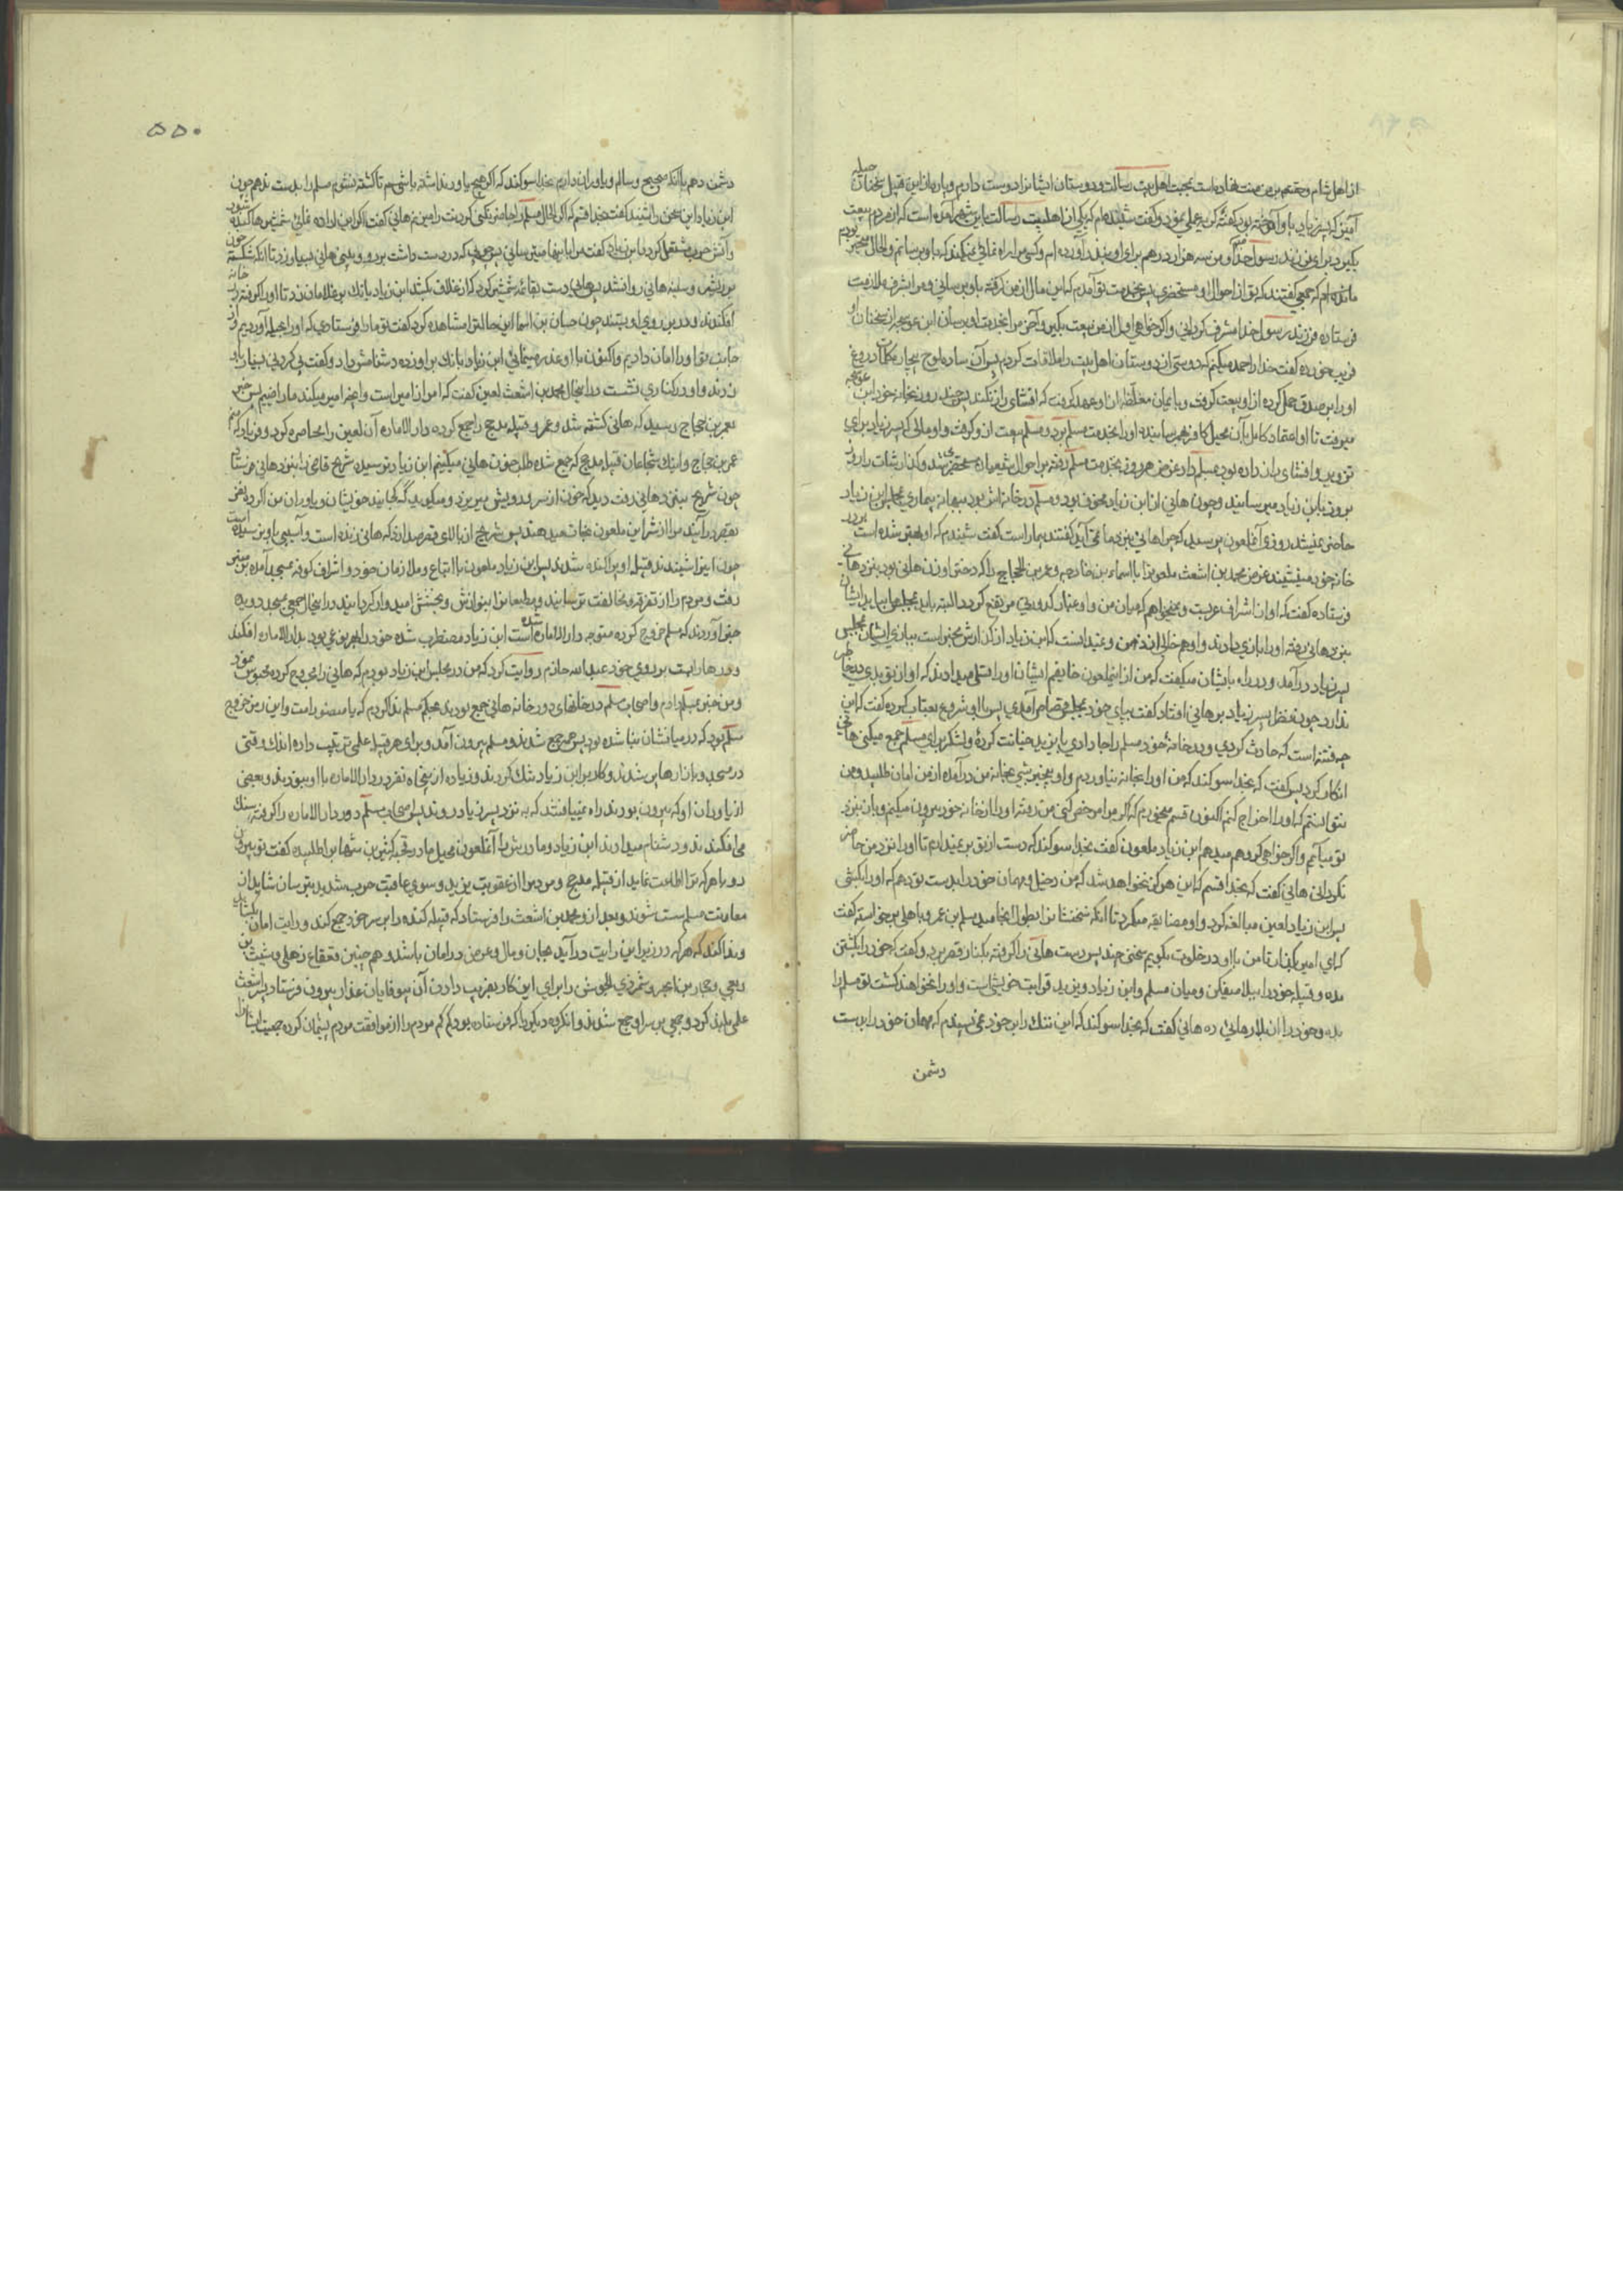 از اهل شام و حقتعالی بر من منت نهاده است بمحبت اهل بیت رسالت و دوستان ایشانرا دوست دارم و پاره از این قبیل سخنان حیله
آمیز که پسر زیاد باو آموخته بود گفته گریه عملی نمود و گفت شنیده‌ام که یکی از اهلبیت رسالت باین شهر آمده است که از مردم بیعت
بگیرد برای فرزند رسول خدا و من سه هزار درهم برای او بنذر آورده‌ام و کسی مرا راه نمائی نمیکند که باو برسانم و الحال در مسجد بودم
مانده‌ام که جمعی گفتند که تو از احوال او مستحضری پس بخدمت تو آمدم که این مال از من گرفته باو برسانی و مرا بشرف ملازمت
فرستاده فرزند رسول خدا مشرف گردانی و اگر خواهی اول از من بیعت بگیر و آخر مرا بخدمت او برسان ابن عوسجه از سخنان او
فریب خورده گفت خدا را حمد میکنم که دوستی از دوستان اهل بیت را ملاقات کردم پس آن ساده لوح بیچاره کلمات دروغ
او را بر صدق حمل کرده از او بیعت گرفت و بایمان مغلظه از او عهد گرفت که افشای راز نکند پس چند روز بخانه خود ابن عوسجه
میرفت تا او اعتماد کامل بآن محیل کافر بهم رسانیده او را بخدمت مسلم برد و مسلم بیعت از و گرفت و او مالی که پسر زیاد برای
تزویر و افشای راز داده بود بمسلم داد غرض هر روز بخدمت مسلم رفته بر احوال شیعیان مستحضر میشد و گذارشات را روز
بروز بابن زیاد میرسانید و چون هانی از ابن زیاد مخوف بود و مسلم در خانه اش بود ببهانه بیماری بمجلس ابن زیاد
حاضر نمیشد روزی آنملعون پرسید که چرا هانی بنزد ما نمی آید گفتند بیمار است گفت شنیدم که او بهتر شده است و بر در
خانه خود مینشیند غرض محمد بن اشعث ملعون را با اسماء بن خارجه و عمرو بن الحجاج را که دختر او زن هانی بود بنزد هانی
فرستاده گفت که او از اشراف عربست و نمیخواهم که میان من و او غبار کدورتی مرتفع گردد البته باید بمجلس ما بیاید ایشان
بنزد هانی رفته او را بازی دادند و او هم خالی الذهن و نمیدانست که ابن زیاد از گذارش مخبر است ببازی ایشان بمجلس
پسر زیاد درآمد و در راه بایشان میگفت که من از اینملعون خایفم ایشان او را تسلی میدادند که او از تو بدی در خاطر
ندارد چون نظر پسر زیاد بر هانی افتاد گفت بپای خود بمجلس قصاص آمدی پس با او شروع بعتاب کرده گفت که این
چه فتنه است که حادث کردی و در خانه خود مسلم را جا دادی با یزید خیانت کرده و لشکر برای مسلم جمع میکنی هانی
انکار کرد پس گفت که بخدا سوگند که من او را بخانه نیاوردم و او بیخبر شبی بخانه من درآمده از من امان طلبید و من
نتوانستم که او را اخراج کنم اکنون قسم میخورم که اگر مرا مرخص کنی من رفته او را از خانه خود بیرون میکنم و باز بنزد
تو میآیم و اگر خواهی گرو هم میدهم ابن زیاد ملعون گفت بخدا سوگند که دست از تو بر نمیدارم تا او را نزد من حاضر
نگردانی هانی گفت که بخدا قسم که این هرگز نخواهد شد که من دخیل و مهمان خود را بدست تو دهم که او را بکشی
پس ابن زیاد لعین مبالغه کرد و او مضایقه میکرد تا آنکه سخنشان بطول انجامید مسلم بن عمرو باهلی برخاسته گفت
که ای امیر بگذار تا من با او در خلوت بگویم سخنی چند پس دست هانی را گرفته بکنار قصر برد و گفت که خود را بکشتن
مده و قبیله خود را ببلا میفکن و میان مسلم و ابن زیاد و یزید قرابت خویشی است و او را نخواهند کشت تو مسلم را
بده و خود را از بلا رهائی ده هانی گفت که بخدا سوگند که این ننگ را بر خود نمی پسندم که مهمان خود را بدست
دشمن
۵۵۰
دشمن دهم با آنکه صحیح و سالم و یاوران دارم بخدا سوگند که اگر هیچ یاور نداشته باشم هم تا کشته نشوم مسلم را بدست ندهم چون
ابن زیاد این سخن را شنید گفت بخدا قسم که اگر الحال مسلم را حاضر نکنی گردنت را میزنم هانی گفت اگر این اراده نمائی شمشیرها کشیده شود
و آتش حرب مشتعل گردد ابن زیاد گفت مرا باینها میترسانی پس چوبی که در دست داشت بر رو و بینی هانی بسیار زد تا آنکه شکسته
بر ریش و سینه هانی روانشد پس هانی دست بقائمه شمشیر کرد که از غلاف بکشد ابن زیاد بانک بر غلامان زد تا او را گرفته در خانه
افکندند و در بر روی او بستند چون حسان بن اسما این حالت را مشاهده کرد گفت تو ما را فرستادی که او را بحیله آوردیم و از
جانب تو او را امان دادیم و اکنون با او غدر مینمائی ابن زیاد بانک بر او زده دشنامش داد و گفت پی گردنی بسیار باو
زدند و او در کناری نشست در اینحال محمد بن اشعث لعین گفت که امر از امیر است و آنچه امیر میکند ما راضییم پس خبر
بعمرو بن حجاج رسید که هانی کشته شد و عمرو قبیله مذحج را جمع کرده دار الاماره آن لعین را محاصره کرد و فریاد که منم
عمرو بن حجاج و اینک شجاعان قبیله مذحج که جمع شده طلب خون هانی میکنیم ابن زیاد ترسیده شریح قاضی را بنزد هانی فرستاد
چون شریح بنزد هانی رفت دید که خون از سر و رویش میریزد و میگوید که کجایند خویشان و یاوران من اگر ده نفر
بقصر درآیند مرا از شر این ملعون نجات میدهند پس شریح از بالای قصر صدا زد که هانی زنده است و آسیبی باو نرسیده است
چون اینرا شنیدند قبیله او پراکنده شدند پس ابن زیاد ملعون با اتباع و ملازمان خود و اشراف کوفه بمسجد آمده بر منبر
رفت و مردم را از تفرقه و مخالفت ترسانید و مطیعانرا بنوازش و بخشش امیدوار گردانید در اینحال جمعی بمسجد دویده
خبر آوردند که مسلم خروج کرده متوجه دار الاماره شده است ابن زیاد مضطرب شده خود را بهر نوعی بود بدار الاماره افکند
و درها را بست بر روی خود عبدالله حازم روایت کرد که من در مجلس ابن زیاد بودم که هانی را مجروح کرده محبوس نمود
و من خبر بمسلم دادم و اصحاب مسلم در خانهای دور خانه هانی جمع بودند بحکم مسلم ندا کردم که یا منصور امت و این رمز خروج
مسلم بود که در میانشان بنا شده بود پس همه جمع شدند و مسلم بیرون آمد و برای هر قبیله علمی ترتیب داده اندک وقتی
در مسجد و بازارها پر شدند و کار بر ابن زیاد تنک کردند و زیاده از پنجاه نفر در دار الاماره با او نبودند و بعضی
از یاوران او که بیرون بودند راه نمییافتند که به نزد پسر زیاد روند پس اصحاب مسلم دور دار الاماره را گرفته سنک
می افکندند و دشنام میدادند ابن زیاد و مادرش را آنملعون محیل کثیر بن شهاب را طلبیده گفت تو بیرون
رو با هر که ترا اطاعت نماید از قبیله مذحج و مردم را از عقوبت یزید و سوی عاقبت حرب شدید بترسان شاید از
معاونت مسلم سست شوند و بعد از و محمد بن اشعث را فرستاد که قبیله کنده را بر سر خود جمع کند و رایت امان بگشاید
و ندا کند که هر که در زیر این رایت درآید بجان و مال و عرض در امان باشد و همچنین قعقاع ذهلی و شبث بن
ربعی و حجار بن ابجر و شمر ذی الجوشن را برای این کار بفریب دادن آن بیوفایان غدار بیرون فرستاد پسر اشعث
علمی بلند کرد و جمعی بر سر او جمع شدند و آنگروه دیگر را که فرستاده بود کم کم مردم را از موافقت مردم پشیمان کرده جمعیت ایشانرا